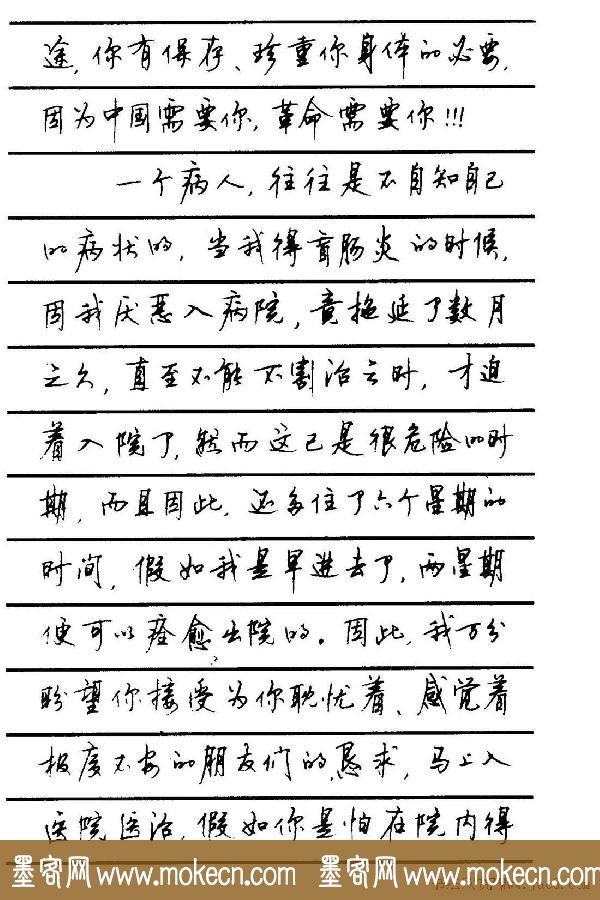 途，你有保存、珍重你身体的必要，
因为中国需要你，革命需要你!!!
一个病人，往往是不自知自己
的病状的，当我得盲肠炎的时候，
因我厌恶入病院，竟拖延了数月
之久，直至不能不割治之时，才迫
着入院了，然而这已是很危险的时
期，而且因此，还多住了六个星期的
时间，假如我是早进去了，两星期
便可以痊愈出院的。因此，我万分
盼望你接受为你耽忧着、感觉着
极度不安的朋友们的恳求，马上入
医院医治，假如你是怕在院内得
墨客网 www.mokecn.com 墨客网 www.mokecn.com